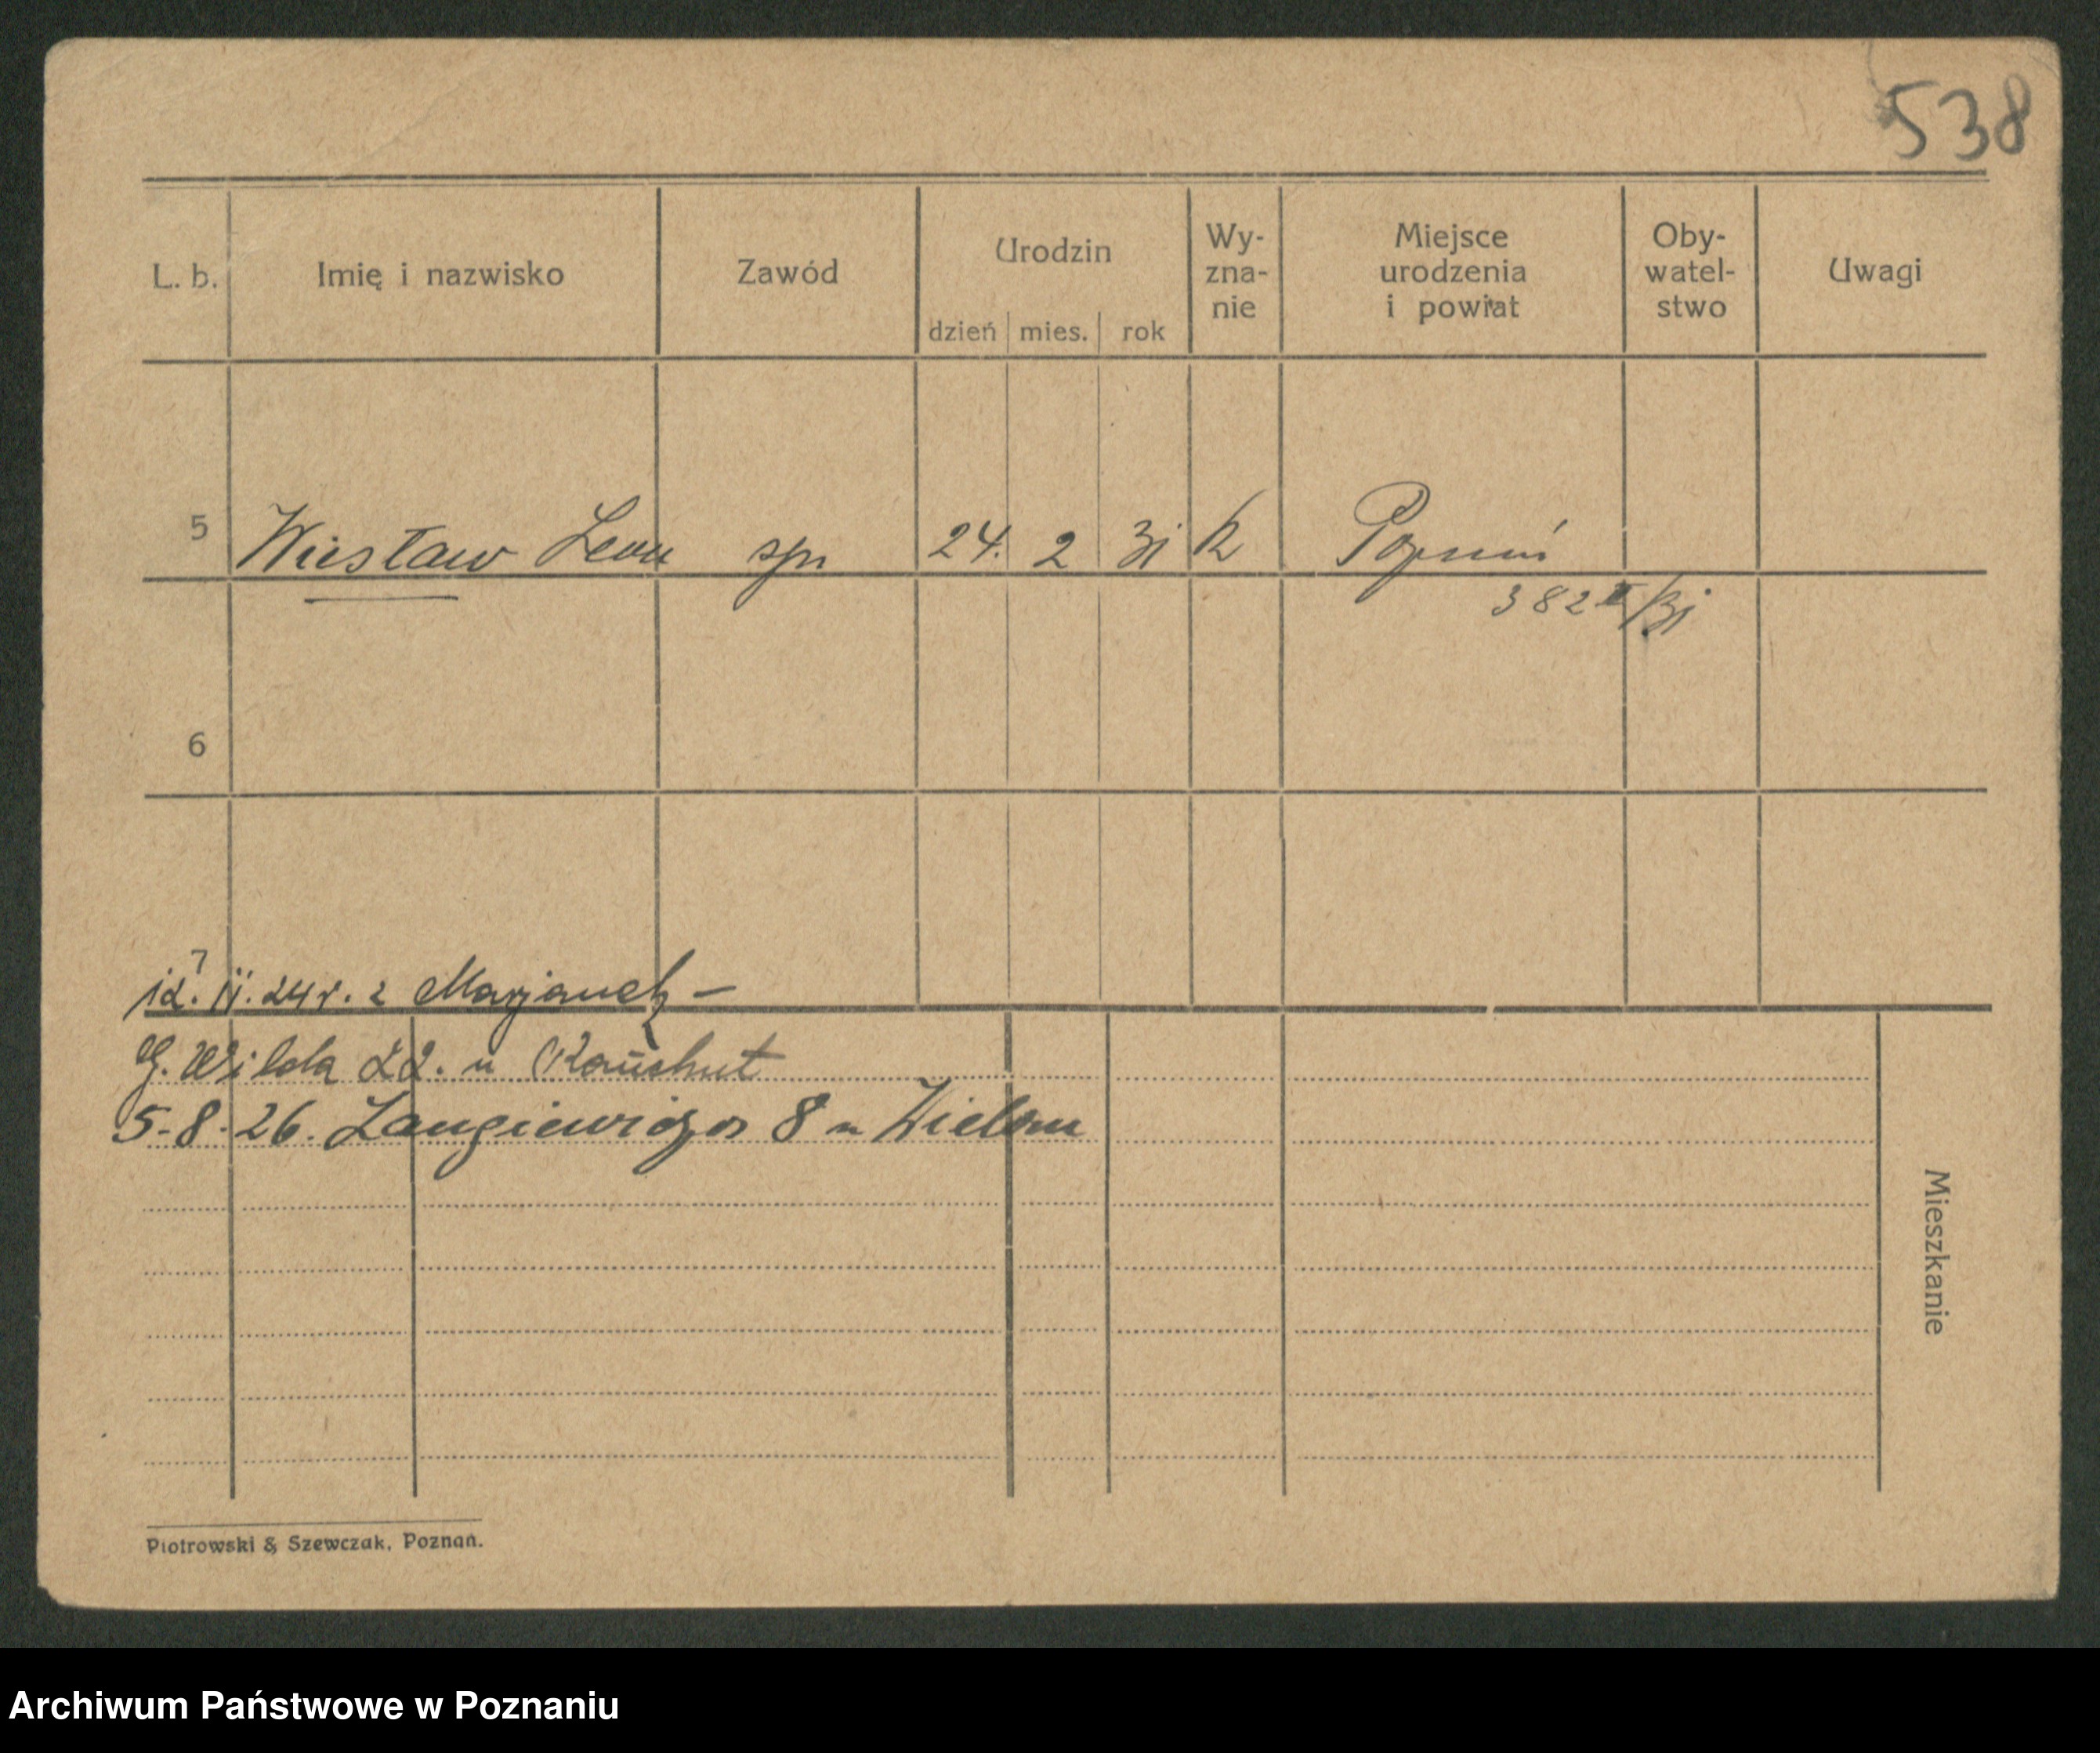 538
L. b. Imię i nazwisko Zawód Urodzin dzień mies. rok Wy-zna-nie Miejsce urodzenia i powiat Oby-watel-stwo Uwagi
5 Wiesław Leon spn 24. 2 31 k Poznań
382 II/31
6
7
12. 11. 24 r. z Marjanek –
G. Wilda 22. u
5-8-26. Langiewicza 8 u
Mieszkanie
Piotrowski & Szewczak, Poznań.
Archiwum Państwowe w Poznaniu